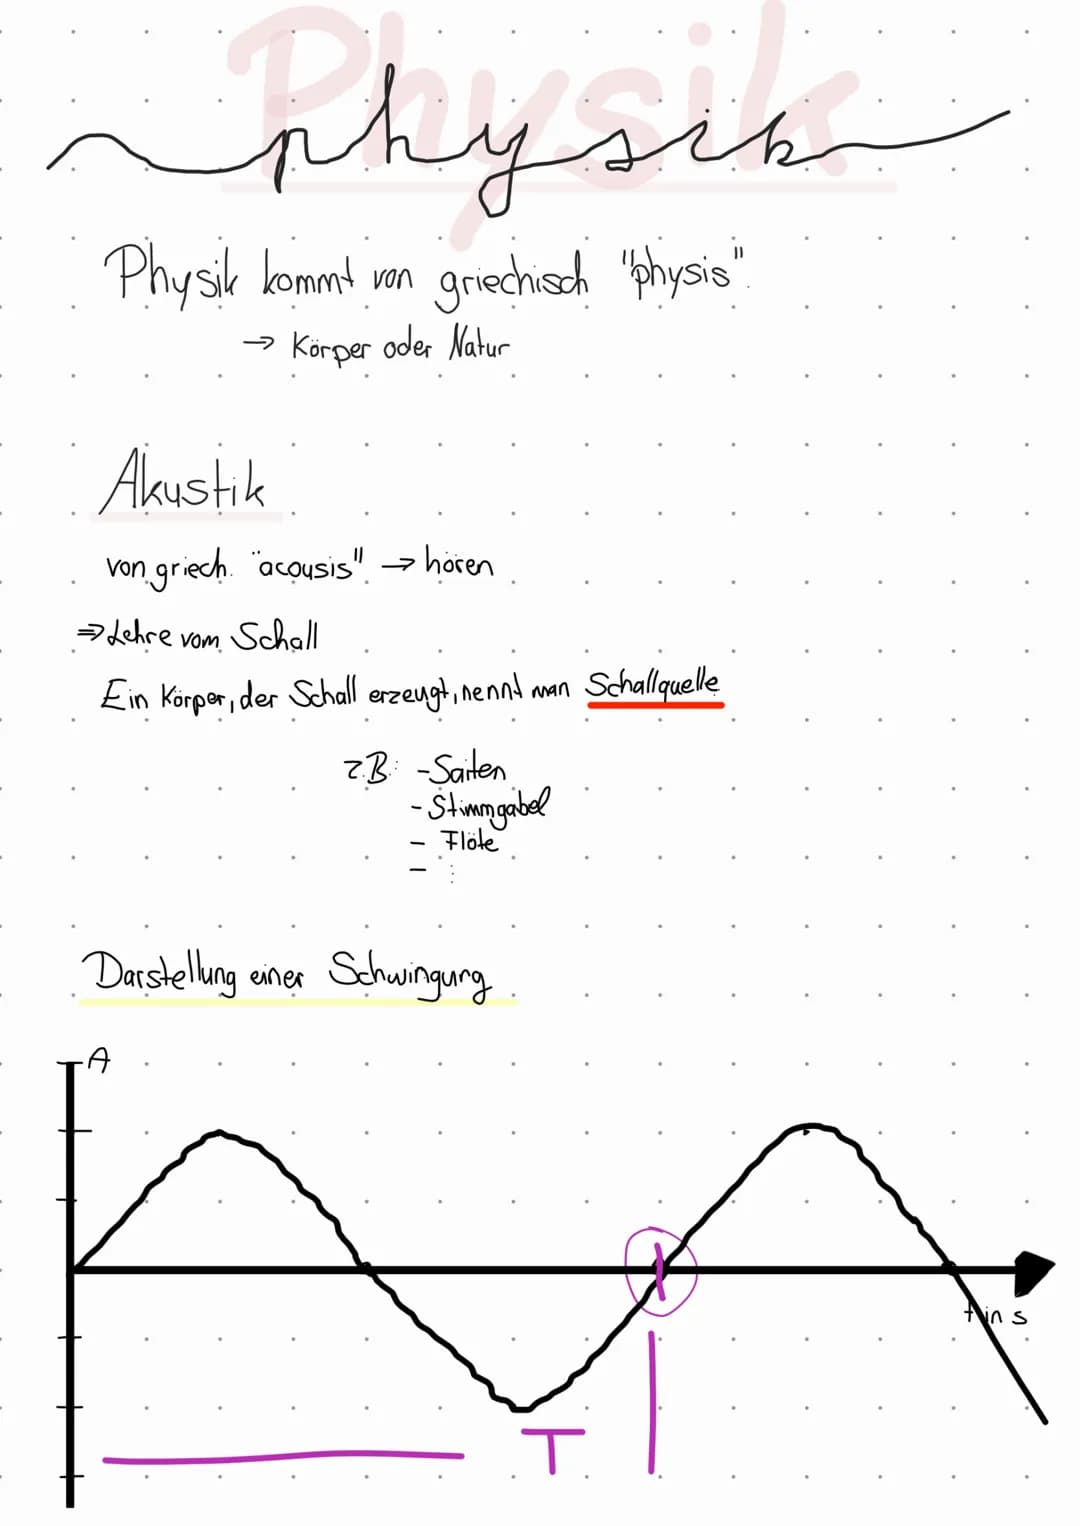 Physik
physik
Physik kommt von griechisch "physis".
→ Körper oder Natur
Akustik
von griech. "acousis" → hören
⇒ Lehre vom Schall
Ein Körper, der Schall erzeugt, nennt man Schallquelle
z.B: - Saiten
- Stimmgabel
- Flöte
- ⋮
Darstellung einer Schwingung
A
t in s
T